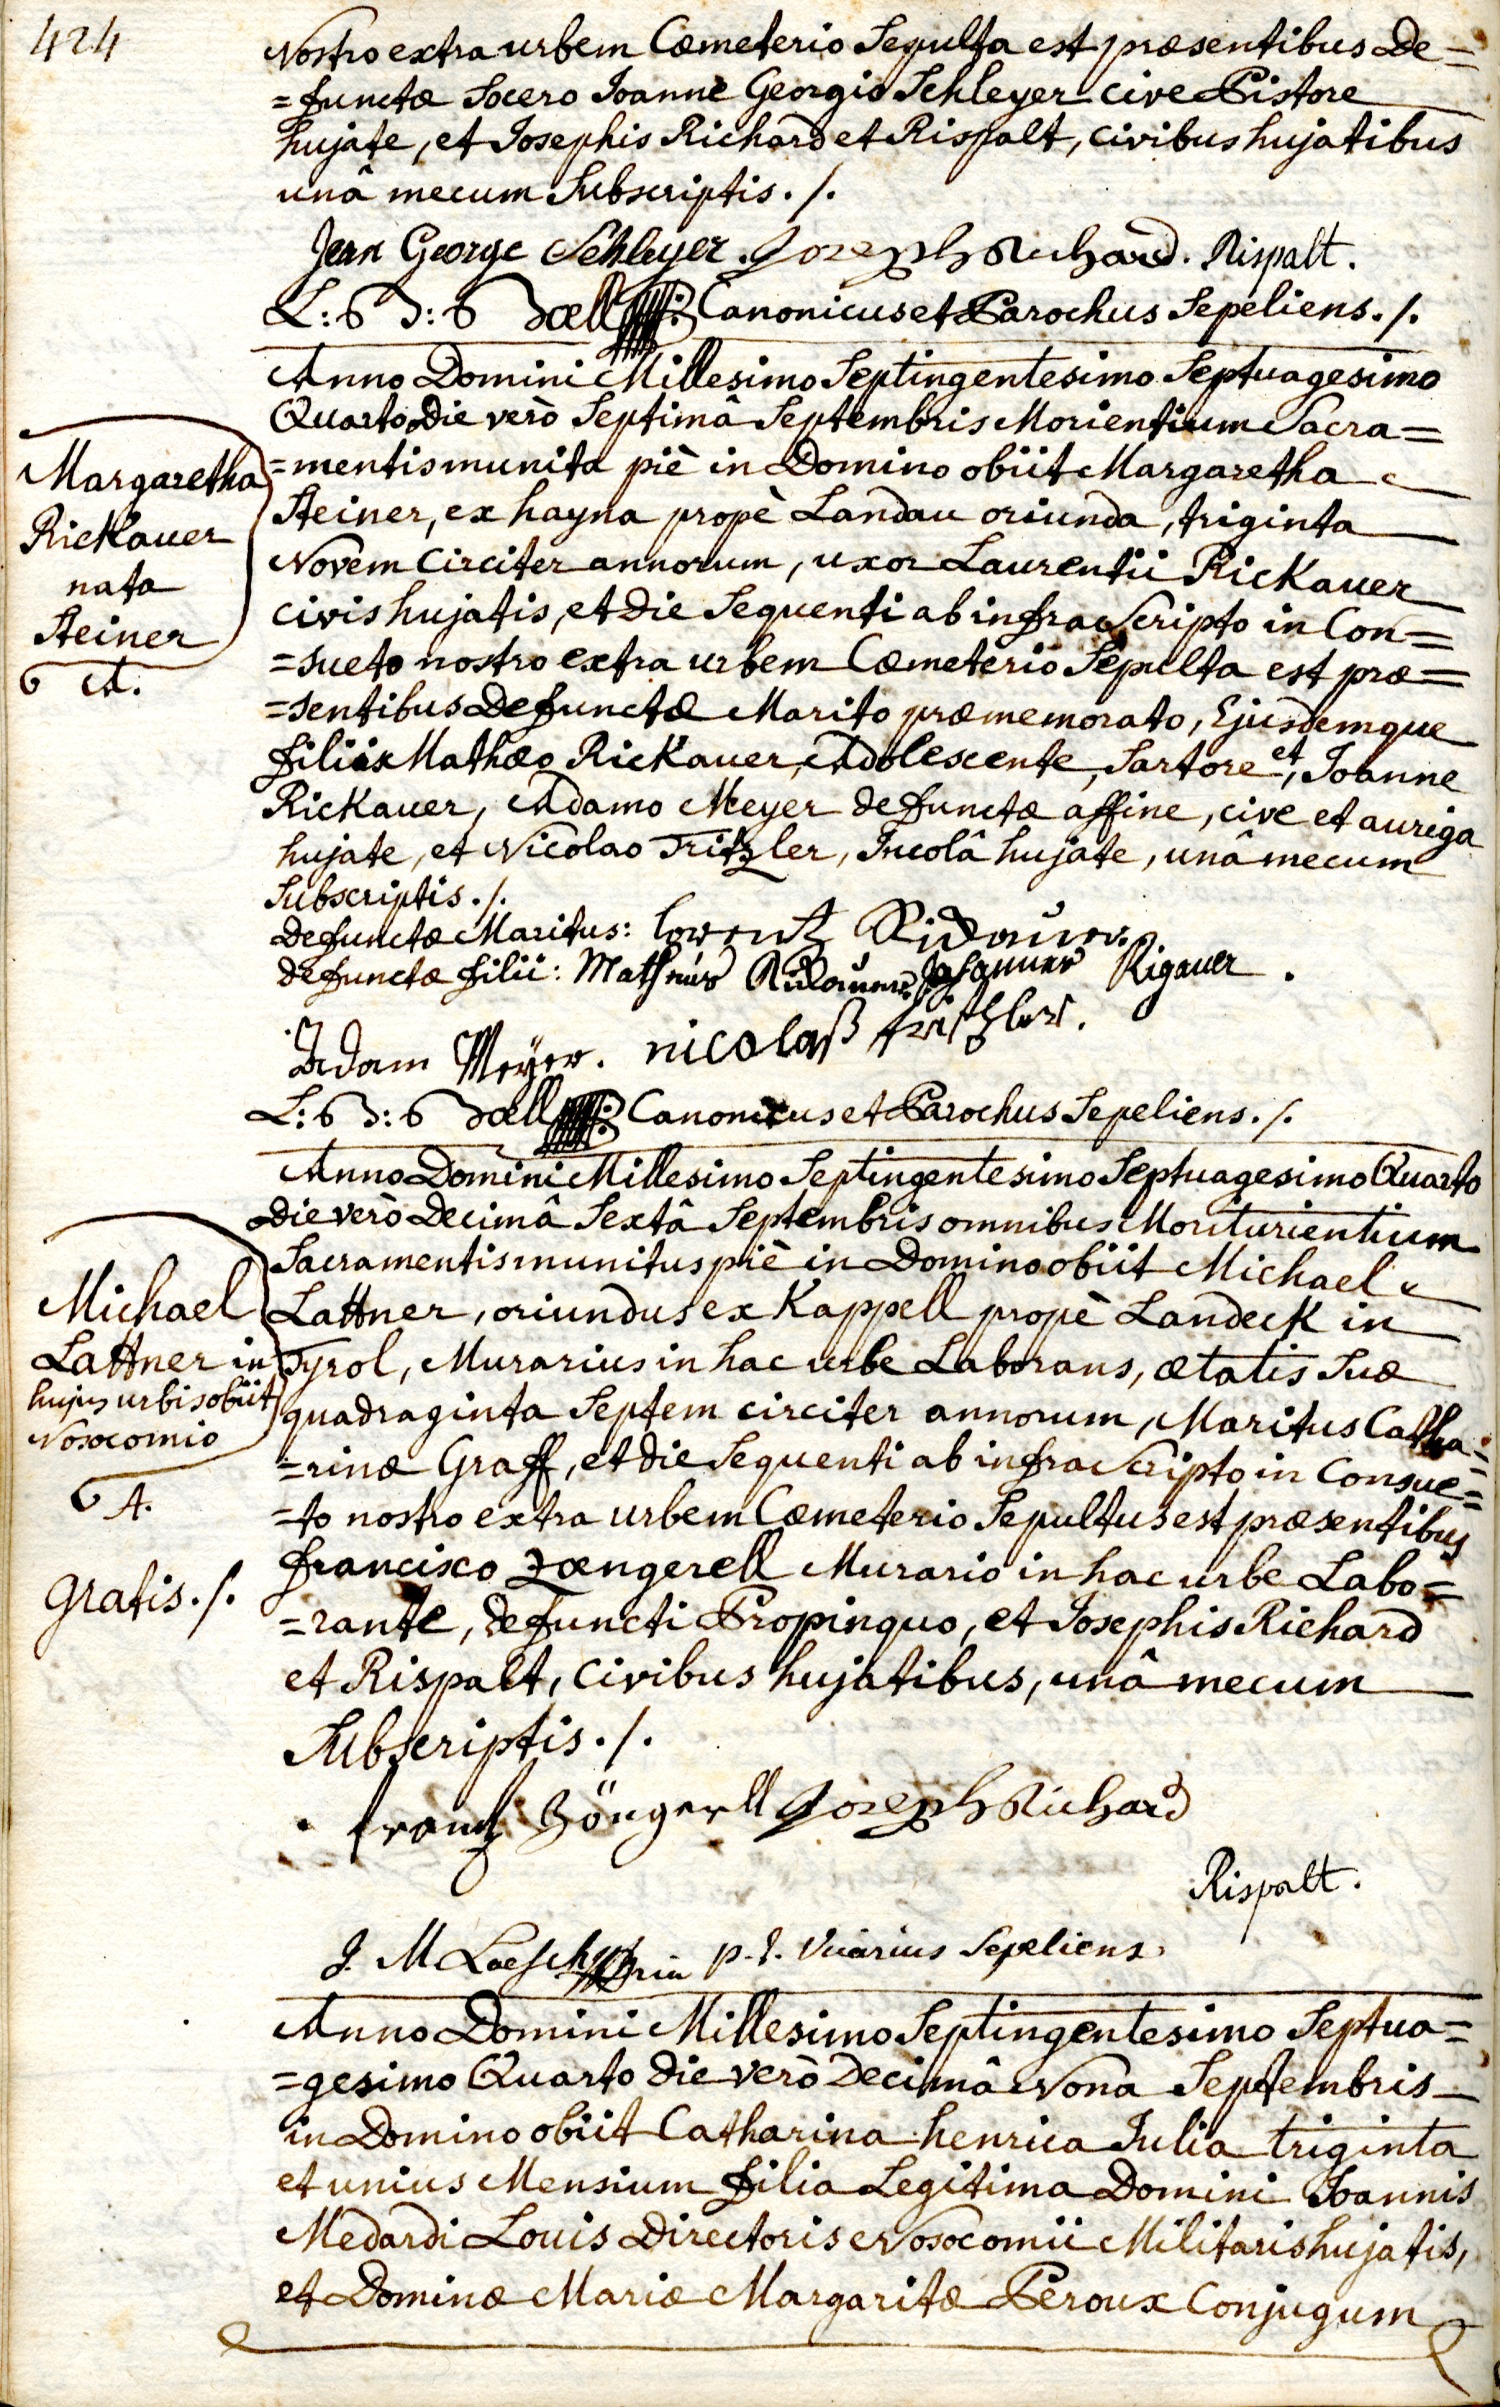 424
Nostro extra urbem Cœmeterio Sepulta est præsentibus De=
=functæ Socero Joanne Georgio Schleyer cive Pistore
hujate, et Josephis Richard et Rispalt, civibus hujatibus
unâ mecum Subscriptis ./.
Jean George Schleyer. Joseph Richard. Rispalt.
Canonicus et Parochus Sepeliens ./.
Anno Domini Millesimo Septingentesimo Septuagesimo
Quarto die verò Septimâ Septembris Morientium Sacra=
=mentis munita piè in Domino obiit Margaretha
Steiner, ex hayna propè Landau oriunda, triginta
Novem Circiter annorum, uxor Laurentii Rickauer
civis hujatis, et die Sequenti ab infra Scripto in Con=
=sueto nostro extra urbem Cœmeterio Sepulta est præ=
=sentibus Defunctæ Marito præmemorato, Ejusdemque
filiis Mathæo Rickauer, Adolescente, Sartore et, Joanne
Rickauer, Adamo Meyer defunctæ affine, cive et auriga
hujate, et Nicolao Tritzler, Incolâ hujate, unâ mecum
Subscriptis ./.
Margaretha
Rickauer
nata
Steiner
A.
Defunctæ Maritus: lorentz
defunctæ filii: Matheus Johannes Rigauer.
Adam Meÿer. nicolaß tritzler.
Canonicus et Parochus Sepeliens ./.
Anno Domini Millesimo Septingentesimo Septuagesimo Quarto
die verò Decimâ Sextâ Septembris omnibus Moriturientium
Sacramentis munitus piè in Domino obiit Michael
Lattner, oriundus ex Kappell propè Landeck in
Tyrol, Murarius in hac urbe Laborans, ætatis Suæ
quadraginta Septem circiter annorum, Maritus Catha=
=rinæ Graff, et die Sequenti ab infra Scripto in Consue=
=to nostro extra urbem Cœmeterio Sepultus est præsentibus
francisco Zœngerell Murario in hac urbe Labo=
=rante, defuncti Propinquo, et Josephis Richard
et Rispalt, Civibus hujatibus, unâ mecum
Subscriptis ./.
Michael
Lattner in
hujus urbis obiit
Nosocomio
A.
gratis ./.
frantz Zöngerell Joseph Richard
Rispalt.
J. M p. t. Vicarius Sepeliens.
Anno Domini Millesimo Septingentesimo Septua=
=gesimo Quarto die verò Decimâ Nona Septembris
in Domino obiit Catharina henrica Julia triginta
et unius Mensium filia Legitima Domini Joannis
Medardi Louis Directoris Nosocomii Militaris hujatis,
et Dominæ Mariæ Margaritæ Peroux Conjugum